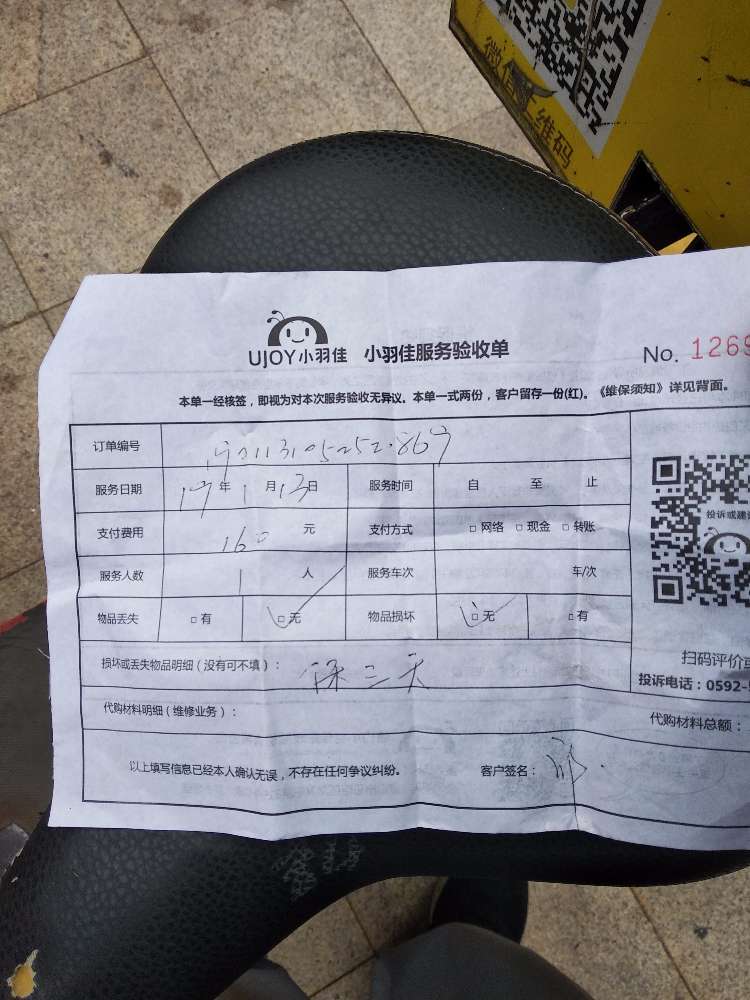 微信二维码
UJOY小羽佳 小羽佳服务验收单
No. 1269
本单一经核签，即视为对本次服务验收无异议。本单一式两份，客户留存一份(红)。《维保须知》详见背面。
订单编号
服务日期 17年1月13日 服务时间 自 至 止
支付费用 160 元 支付方式 □网络 □现金 □转账
服务人数 1 人 服务车次 车/次
物品丢失 □有 □无 物品损坏 □无 □有
投诉或建
扫码评价或
投诉电话：0592-
损坏或丢失物品明细（没有可不填）： 保三天
代购材料明细（维修业务）： 代购材料总额：
以上填写信息已经本人确认无误，不存在任何争议纠纷。 客户签名：